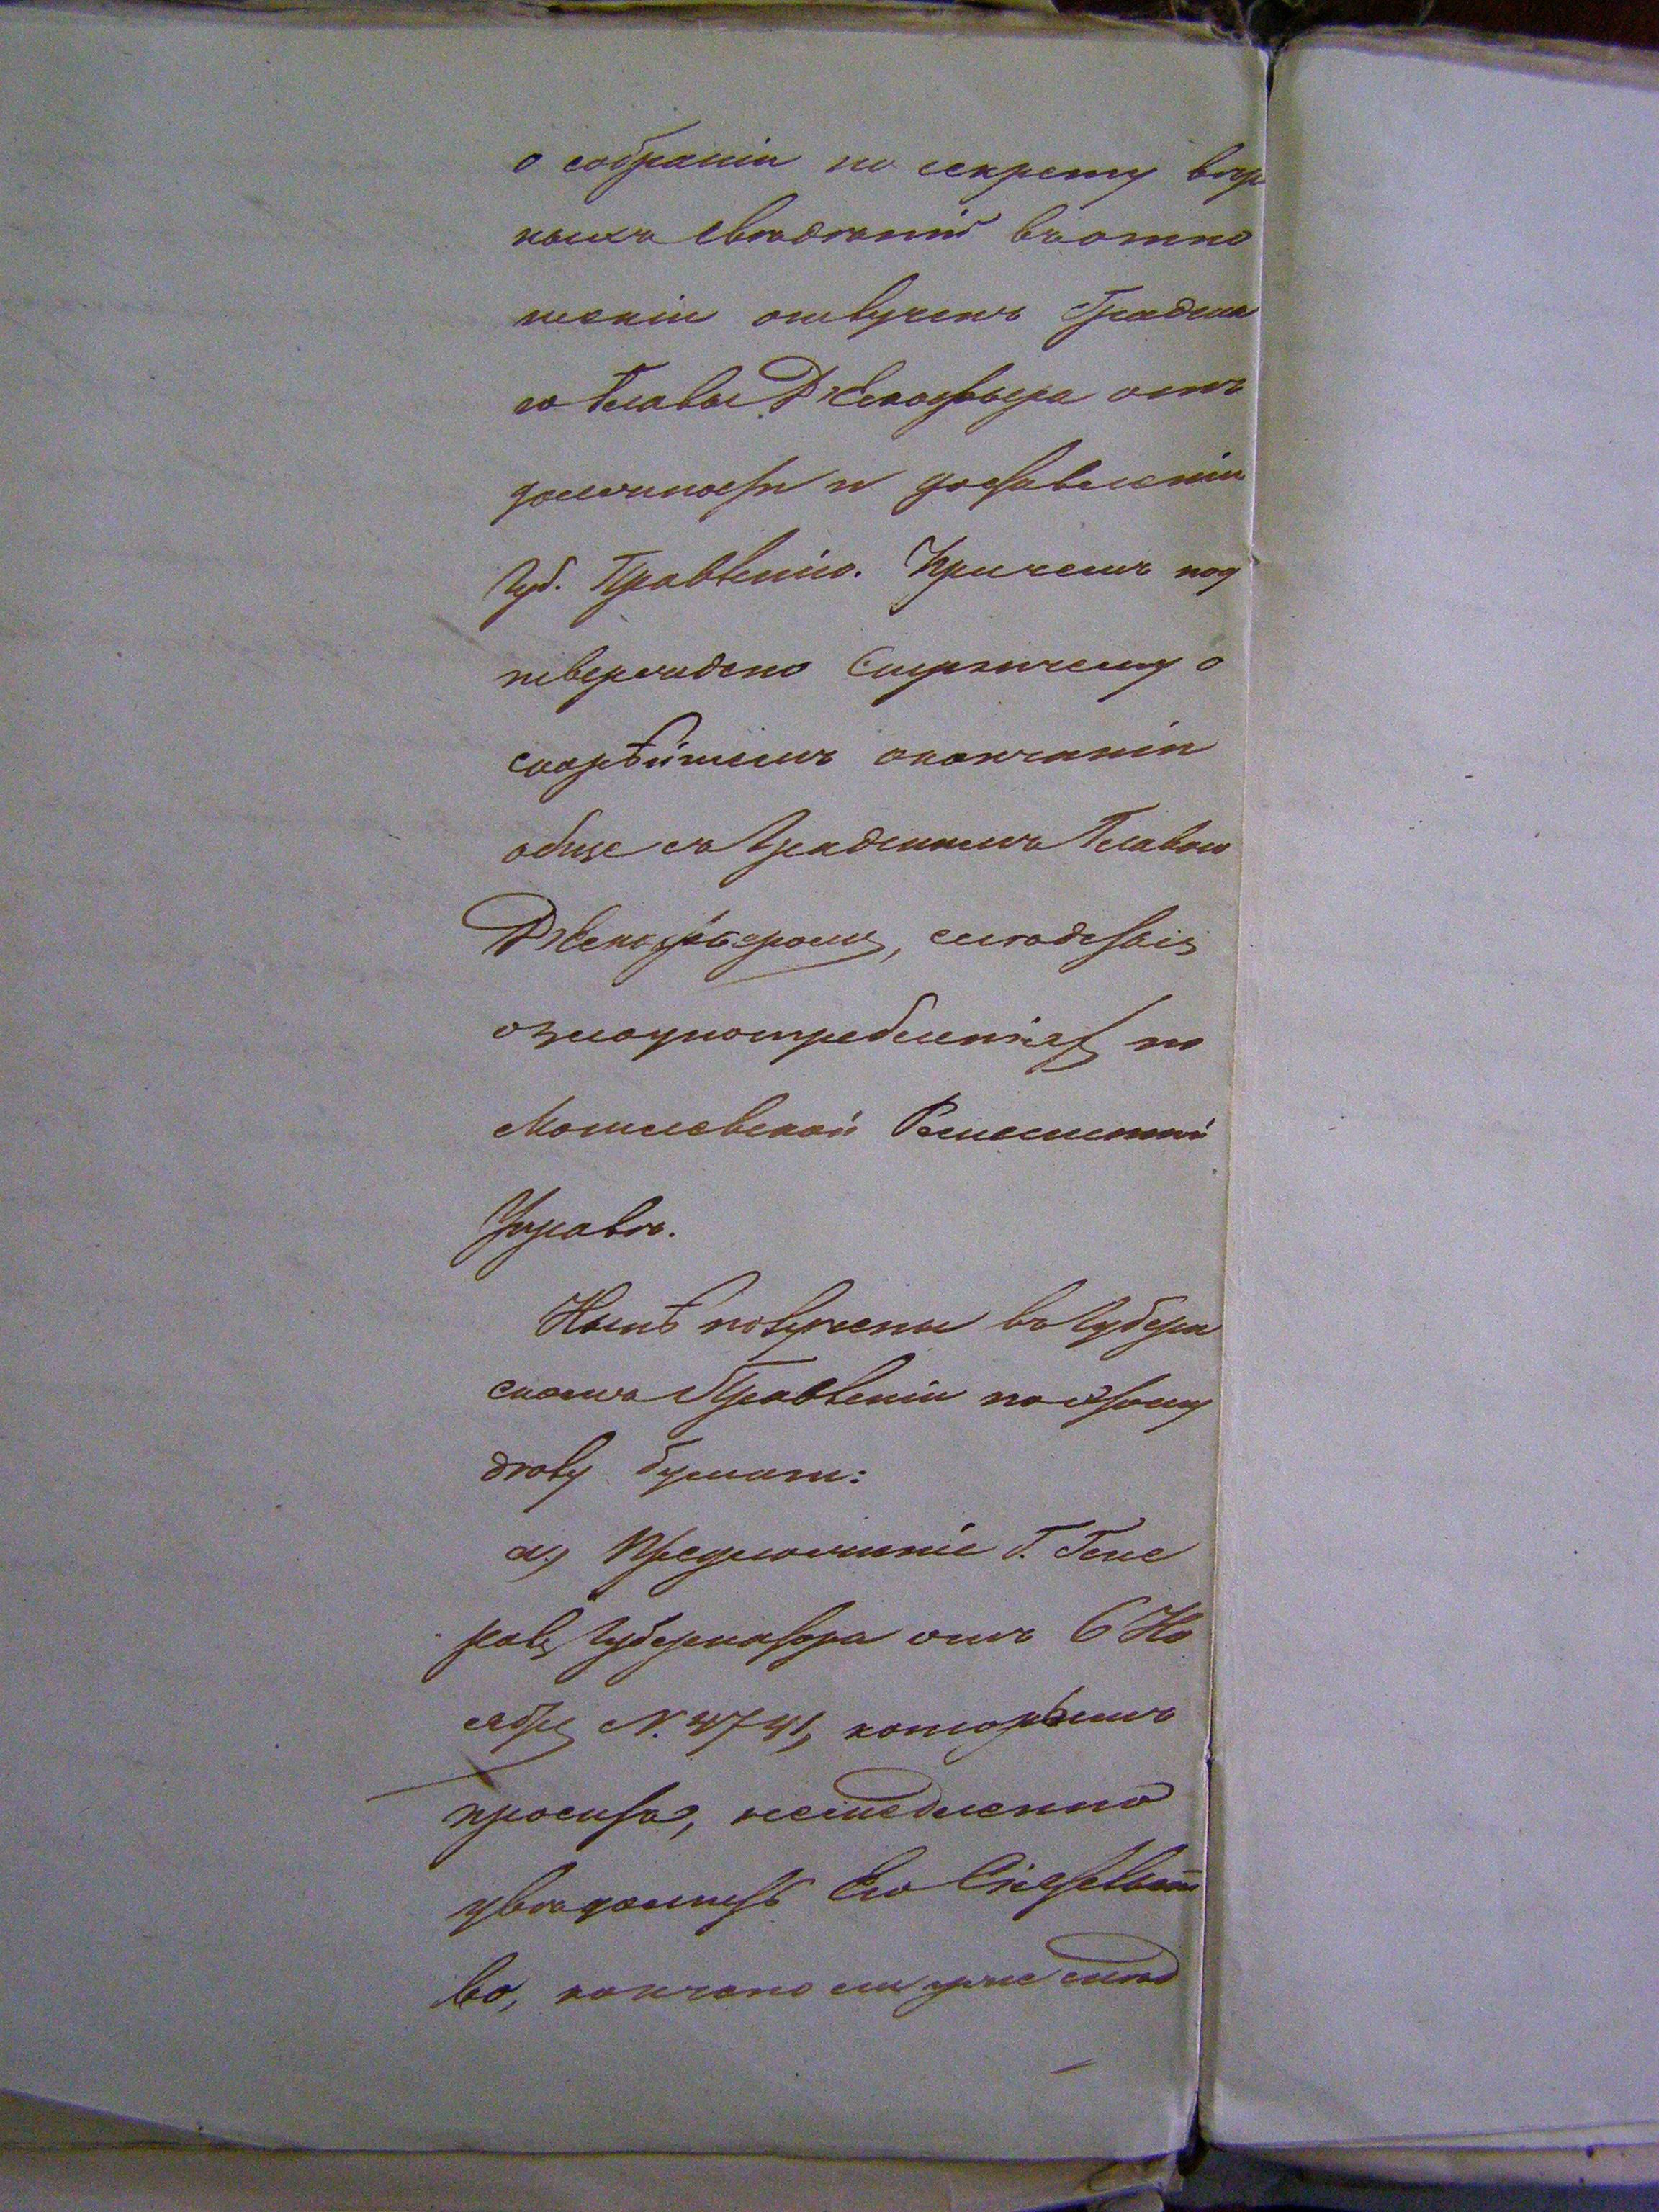 о собраніи по секрету вѣр
ныхъ свѣдѣній въ отно
шеніи отлученъ Градска
го Главы от
должности и доставленіи
Губ. Правленію. Причемъ под
тверждено Стряпчему о
скорѣйшемъ окончаніи
обще съ Градскимъ Главою
слѣдствія
о злоупотребленіях по
Могилевской Ремесленной
Управѣ.
Нынѣ получены въ Губерн
скомъ Правленіи по этому
дѣлу бумаги:
а.) Предложеніе Г. Гене
ралъ Губернатора отъ 6 Но
ября №. 4741, которымъ
проситъ, немедленно
увѣдомить Его Сіятельст
во, кончено ли уже слѣд